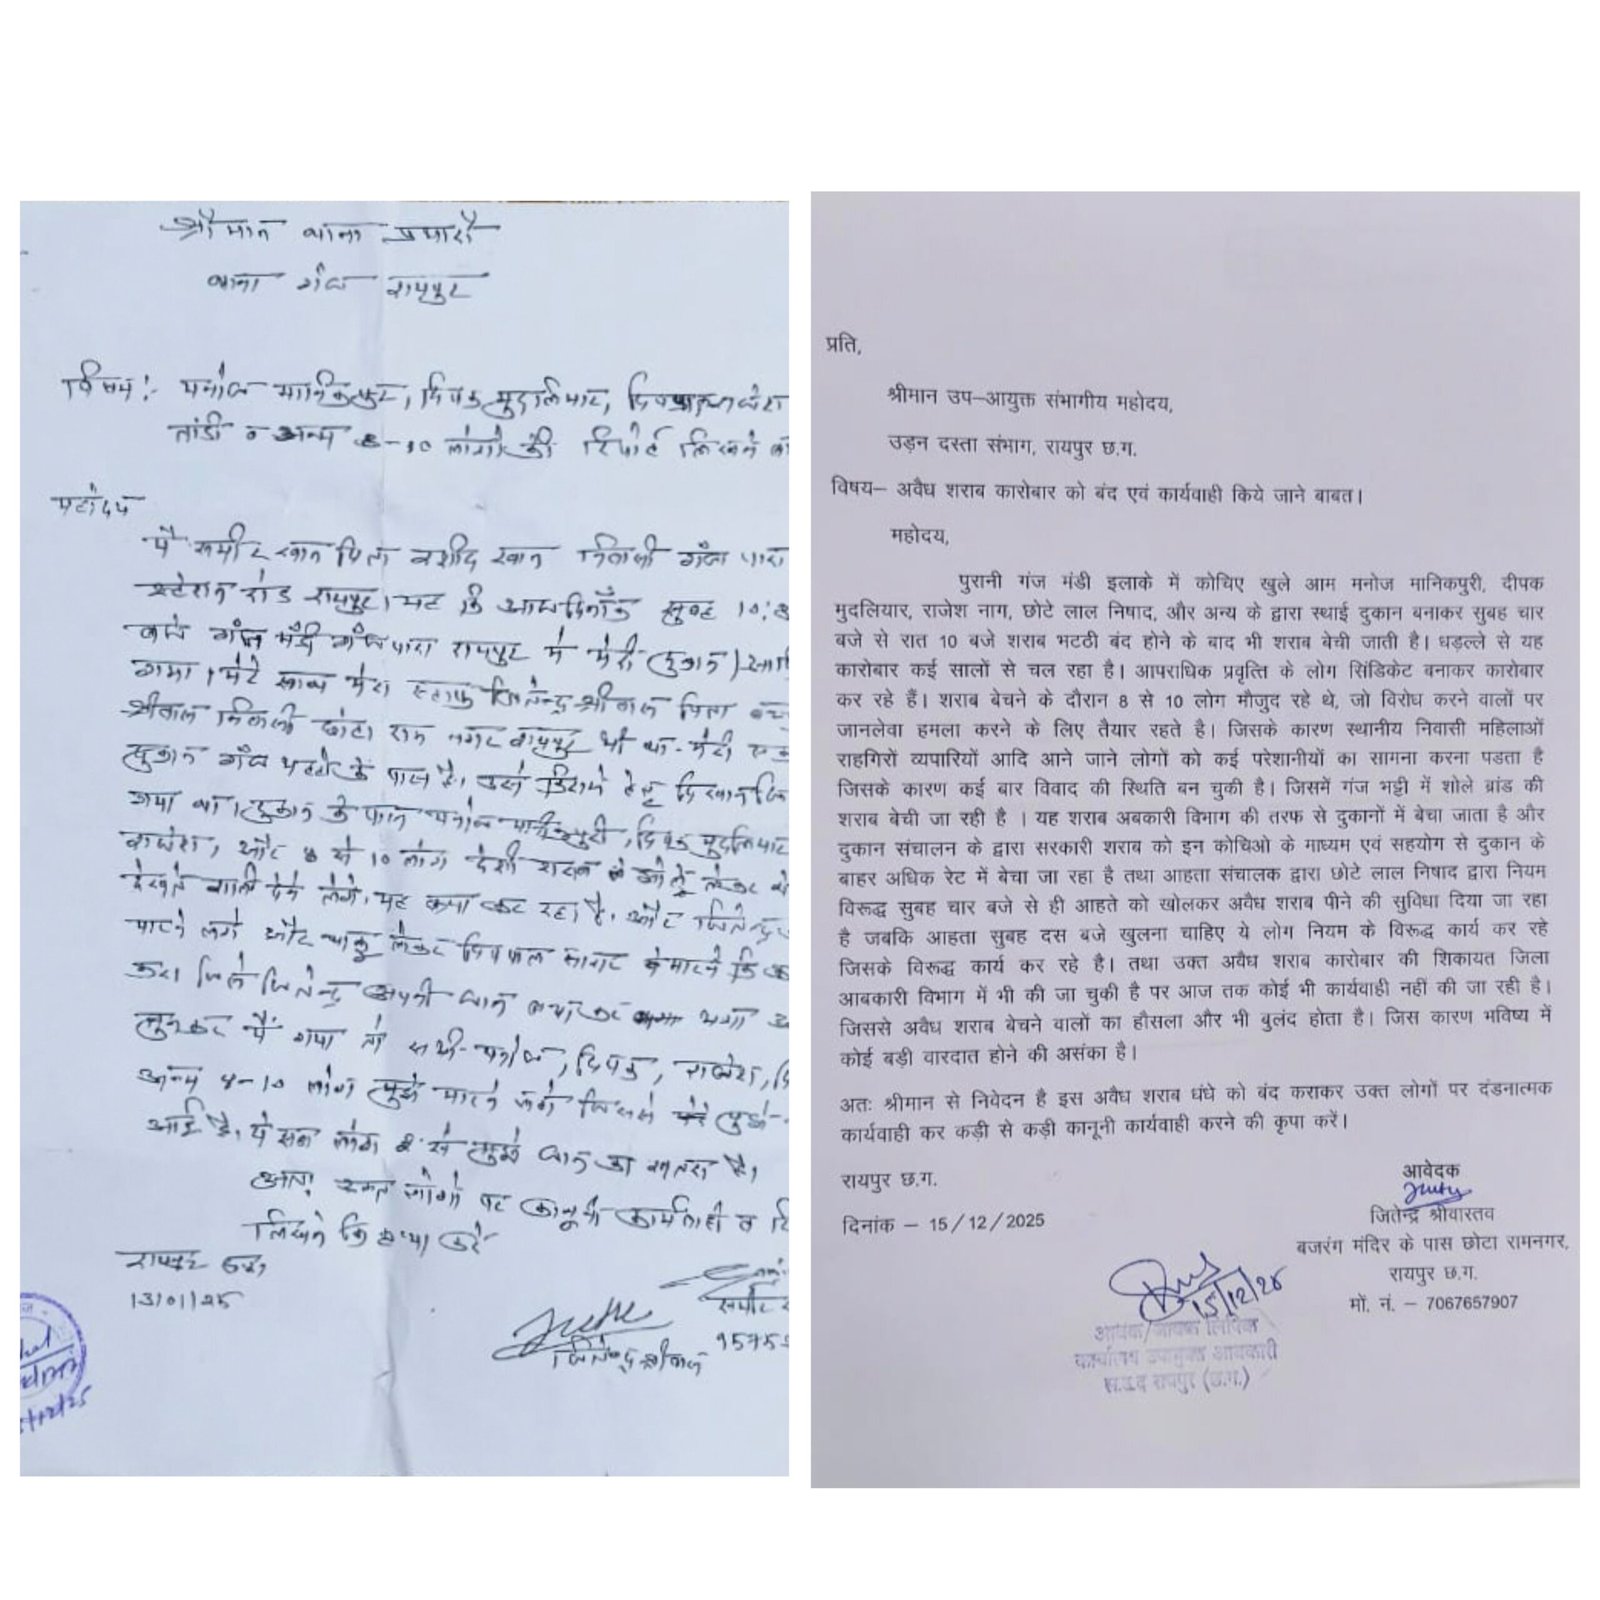 श्रीमान थाना प्रभारी
थाना गंज रायपुर
विषय:- मनोज मानिकपुर, दिपक मुदलियार,
तांडी व अन्य 8-10 लोगो की रिपोर्ट लिखने
महोदय
मै समीर खान पिता रशीद खान निवासी गंज पारा
स्टेशन रोड रायपुर। यह कि आज दिनाँक सुबह
बजे गंज मंडी गंज पारा रायपुर मे मेरी दुकान
गया। मेरे साथ मेरा स्टाफ जितेन्द्र श्रीवास पिता
श्रीवास निवासी छोटा राम नगर रायपुर भी था. मेरी
दुकान गंज भट्टी के पास है। उसे किराये हेतु
गया था। दुकान के पास मनोज मानिकपुरी, दिपक मुदलियार
और 8 से 10 लोग देशी शराब
देखते गाली देने लगे, यह क्या कर रहा है, और जितेन्द्र
मारने लगे और चाकू लेकर
जितेन्द्र अपनी जान बचाकर भागा
मैं गया तो सभी मनोज, दिपक, राकेश,
अन्य 8-10 लोग मुझे मारने लगे जिससे मुझे
आई है, ये सब लोग से मुझे जान का खतरा है।
अतः उक्त लोगो पर कानूनी कार्यवाही व
लिखने कि कृपा करें
रायपुर छ.ग.
13/01/25
समीर
जितेन्द्र श्रीवास
प्रति,
श्रीमान उप–आयुक्त संभागीय महोदय,
उड़न दस्ता संभाग, रायपुर छ.ग.
विषय– अवैध शराब कारोबार को बंद एवं कार्यवाही किये जाने बाबत।
महोदय,
पुरानी गंज मंडी इलाके में कोचिए खुले आम मनोज मानिकपुरी, दीपक
मुदलियार, राजेश नाग, छोटे लाल निषाद, और अन्य के द्वारा स्थाई दुकान बनाकर सुबह चार
बजे से रात 10 बजे शराब भटठी बंद होने के बाद भी शराब बेची जाती है। धड़ल्ले से यह
कारोबार कई सालों से चल रहा है। आपराधिक प्रवृत्ति के लोग सिंडिकेट बनाकर कारोबार
कर रहे हैं। शराब बेचने के दौरान 8 से 10 लोग मौजूद रहे थे, जो विरोध करने वालों पर
जानलेवा हमला करने के लिए तैयार रहते है। जिसके कारण स्थानीय निवासी महिलाओं
राहगिरों व्यपारियों आदि आने जाने लोगों को कई परेशानीयों का सामना करना पडता है
जिसके कारण कई बार विवाद की स्थिति बन चुकी है। जिसमें गंज भट्टी में शोले ब्रांड की
शराब बेची जा रही है । यह शराब अबकारी विभाग की तरफ से दुकानों में बेचा जाता है और
दुकान संचालन के द्वारा सरकारी शराब को इन कोचिओ के माध्यम एवं सहयोग से दुकान के
बाहर अधिक रेट में बेचा जा रहा है तथा आहता संचालक द्वारा छोटे लाल निषाद द्वारा नियम
विरूद्ध सुबह चार बजे से ही आहते को खोलकर अवैध शराब पीने की सुविधा दिया जा रहा
है जबकि आहता सुबह दस बजे खुलना चाहिए ये लोग नियम के विरूद्ध कार्य कर रहे
जिसके विरूद्ध कार्य कर रहे है। तथा उक्त अवैध शराब कारोबार की शिकायत जिला
आबकारी विभाग में भी की जा चुकी है पर आज तक कोई भी कार्यवाही नहीं की जा रही है।
जिससे अवैध शराब बेचने वालों का हौसला और भी बुलंद होता है। जिस कारण भविष्य में
कोई बड़ी वारदात होने की असंका है।
अतः श्रीमान से निवेदन है इस अवैध शराब धंधे को बंद कराकर उक्त लोगों पर दंडनात्मक
कार्यवाही कर कड़ी से कड़ी कानूनी कार्यवाही करने की कृपा करें।
रायपुर छ.ग.
दिनांक – 15/12/2025
आवेदक
जितेन्द्र श्रीवास्तव
बजरंग मंदिर के पास छोटा रामनगर,
रायपुर छ.ग.
मों. नं. – 7067657907
15/12/25
आवक/जावक लिपिक
कार्यालय उपायुक्त आबकारी
सं.उ.द रायपुर (छ.ग.)